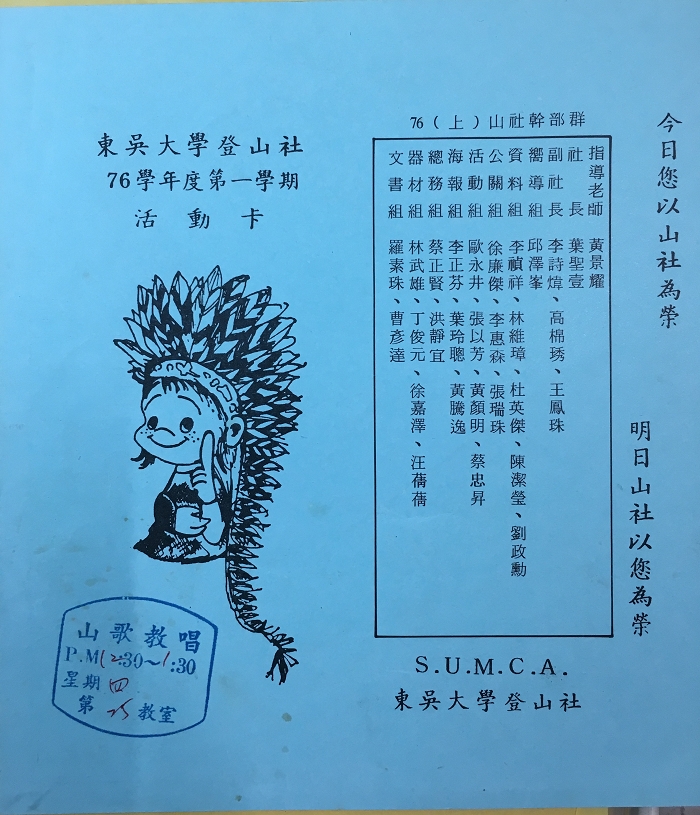 今日您以山社為榮
明日山社以您為榮
76（上）山社幹部群
指導老師 黃景耀
社長 葉聖壹
副社長 李詩煒、高棉琇、王鳳珠
嚮導組 邱澤峯
資料組 李禎祥、林維璋、杜英傑、陳潔瑩、劉政勳
公關組 徐廉傑、李惠森、張瑞珠
活動組 歐永井、張以芳、黃顏明、蔡忠昇
海報組 李正芬、葉玲聰、黃騰逸
總務組 蔡正賢、洪靜宜
器材組 林武雄、丁俊元、徐嘉澤、汪蒨蒨
文書組 羅素珠、曹彥達
S.U.M.C.A.
東吳大學登山社
東吳大學登山社
76學年度第一學期
活動卡
山歌教唱
P.M12:30~1:30
星期四
第 教室